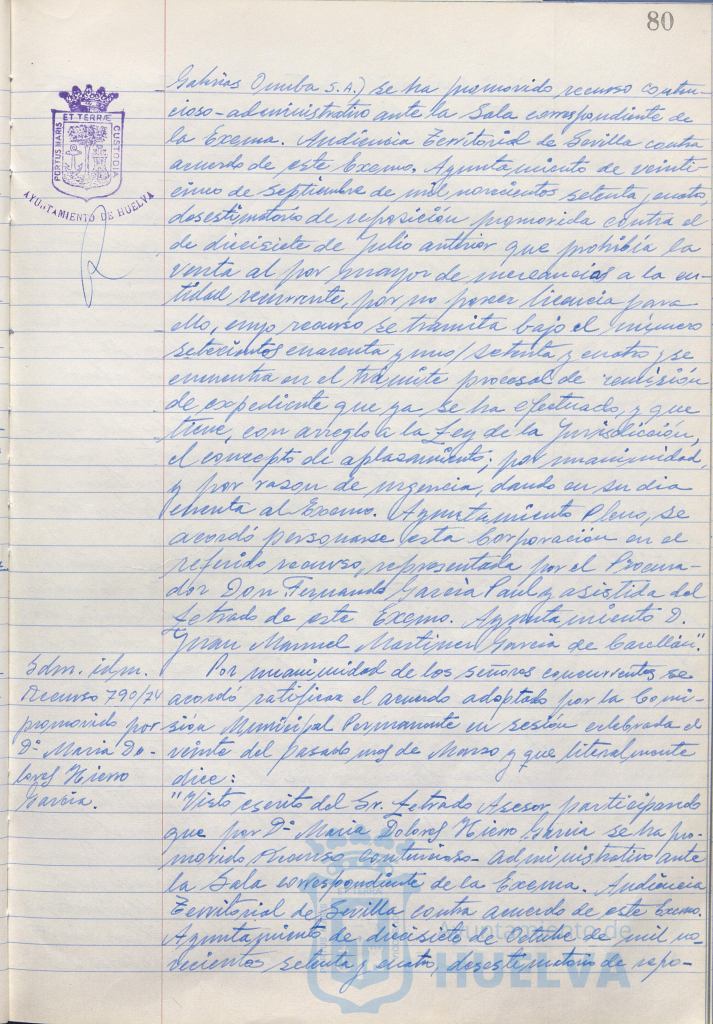 80
PORTUS MARIS ET TERRÆ CUSTODIA
AYUNTAMIENTO DE HUELVA
Onuba S.A.) se ha promovido recurso conten-
cioso-administrativo ante la Sala correspondiente de
la Excma. Audiencia Territorial de Sevilla contra
acuerdo de este Excmo. Ayuntamiento de veinti-
cinco de Septiembre de mil novecientos setenta y cuatro,
desestimatorio de reposición promovida contra el
de diecisiete de Julio anterior que prohibía la
venta al por mayor de mercancías a la en-
tidad recurrente, por no poseer licencia para
ello, cuyo recurso se tramita bajo el número
setecientos cuarenta y uno/setenta y cuatro y se
encuentra en el trámite procesal de remisión
de expediente que ya se ha efectuado, y que
tiene, con arreglo a la Ley de la Jurisdicción,
el concepto de aplazamiento; por unanimidad,
y por razon de urgencia, dando en su dia
cuenta al Excmo. Ayuntamiento Pleno, se
acordó personarse esta Corporación en el
referido recurso, representada por el Procura-
dor Don Fernando García Paul y asistida del
Letrado de este Excmo. Ayuntamiento D.
Juan Manuel Martinez Garcia de
Idm. idm.
Recurso 790/74
promovido por
Dª Maria Do-
lores Hierro
García.
Por unanimidad de los señores concurrentes se
acordó ratificar el acuerdo adoptado por la Comi-
sión Municipal Permanente en sesión celebrada el
veinte del pasado mes de Marzo y que literalmente
dice:
"Visto escrito del Sr. Letrado Asesor participando
que por Dª Maria Dolores Hierro Garcia se ha pro-
movido recurso contencioso-administrativo ante
la Sala correspondiente de la Excma. Audiencia
Territorial de Sevilla contra acuerdo de este Excmo.
Ayuntamiento de diecisiete de Octubre de mil no-
vecientos setenta y cuatro, desestimatorio de repo-
Ayuntamiento de
HUELVA